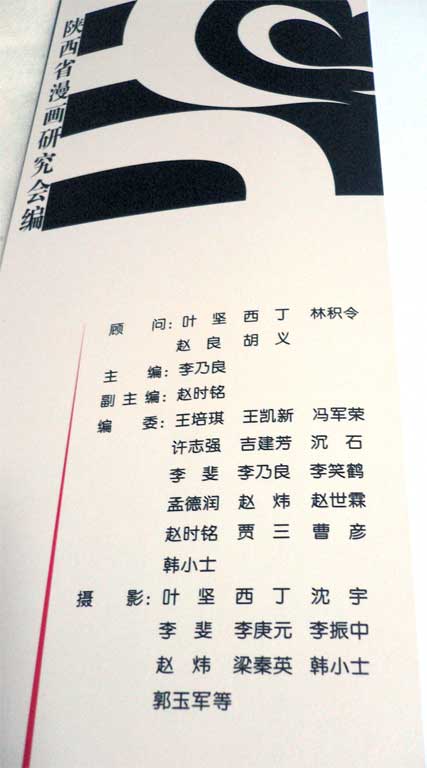 陕西省漫画研究会编
顾　问：叶　坚　西　丁　林积令
赵　良　胡　义
主　编：李乃良
副主编：赵时铭
编　委：王培琪　王凯新　冯军荣
许志强　吉建芳　沉　石
李　斐　李乃良　李笑鹤
孟德润　赵　炜　赵世霖
赵时铭　贾　三　曹　彦
韩小士
摄　影：叶　坚　西　丁　沈　宇
李　斐　李庚元　李振中
赵　炜　梁秦英　韩小士
郭玉军等